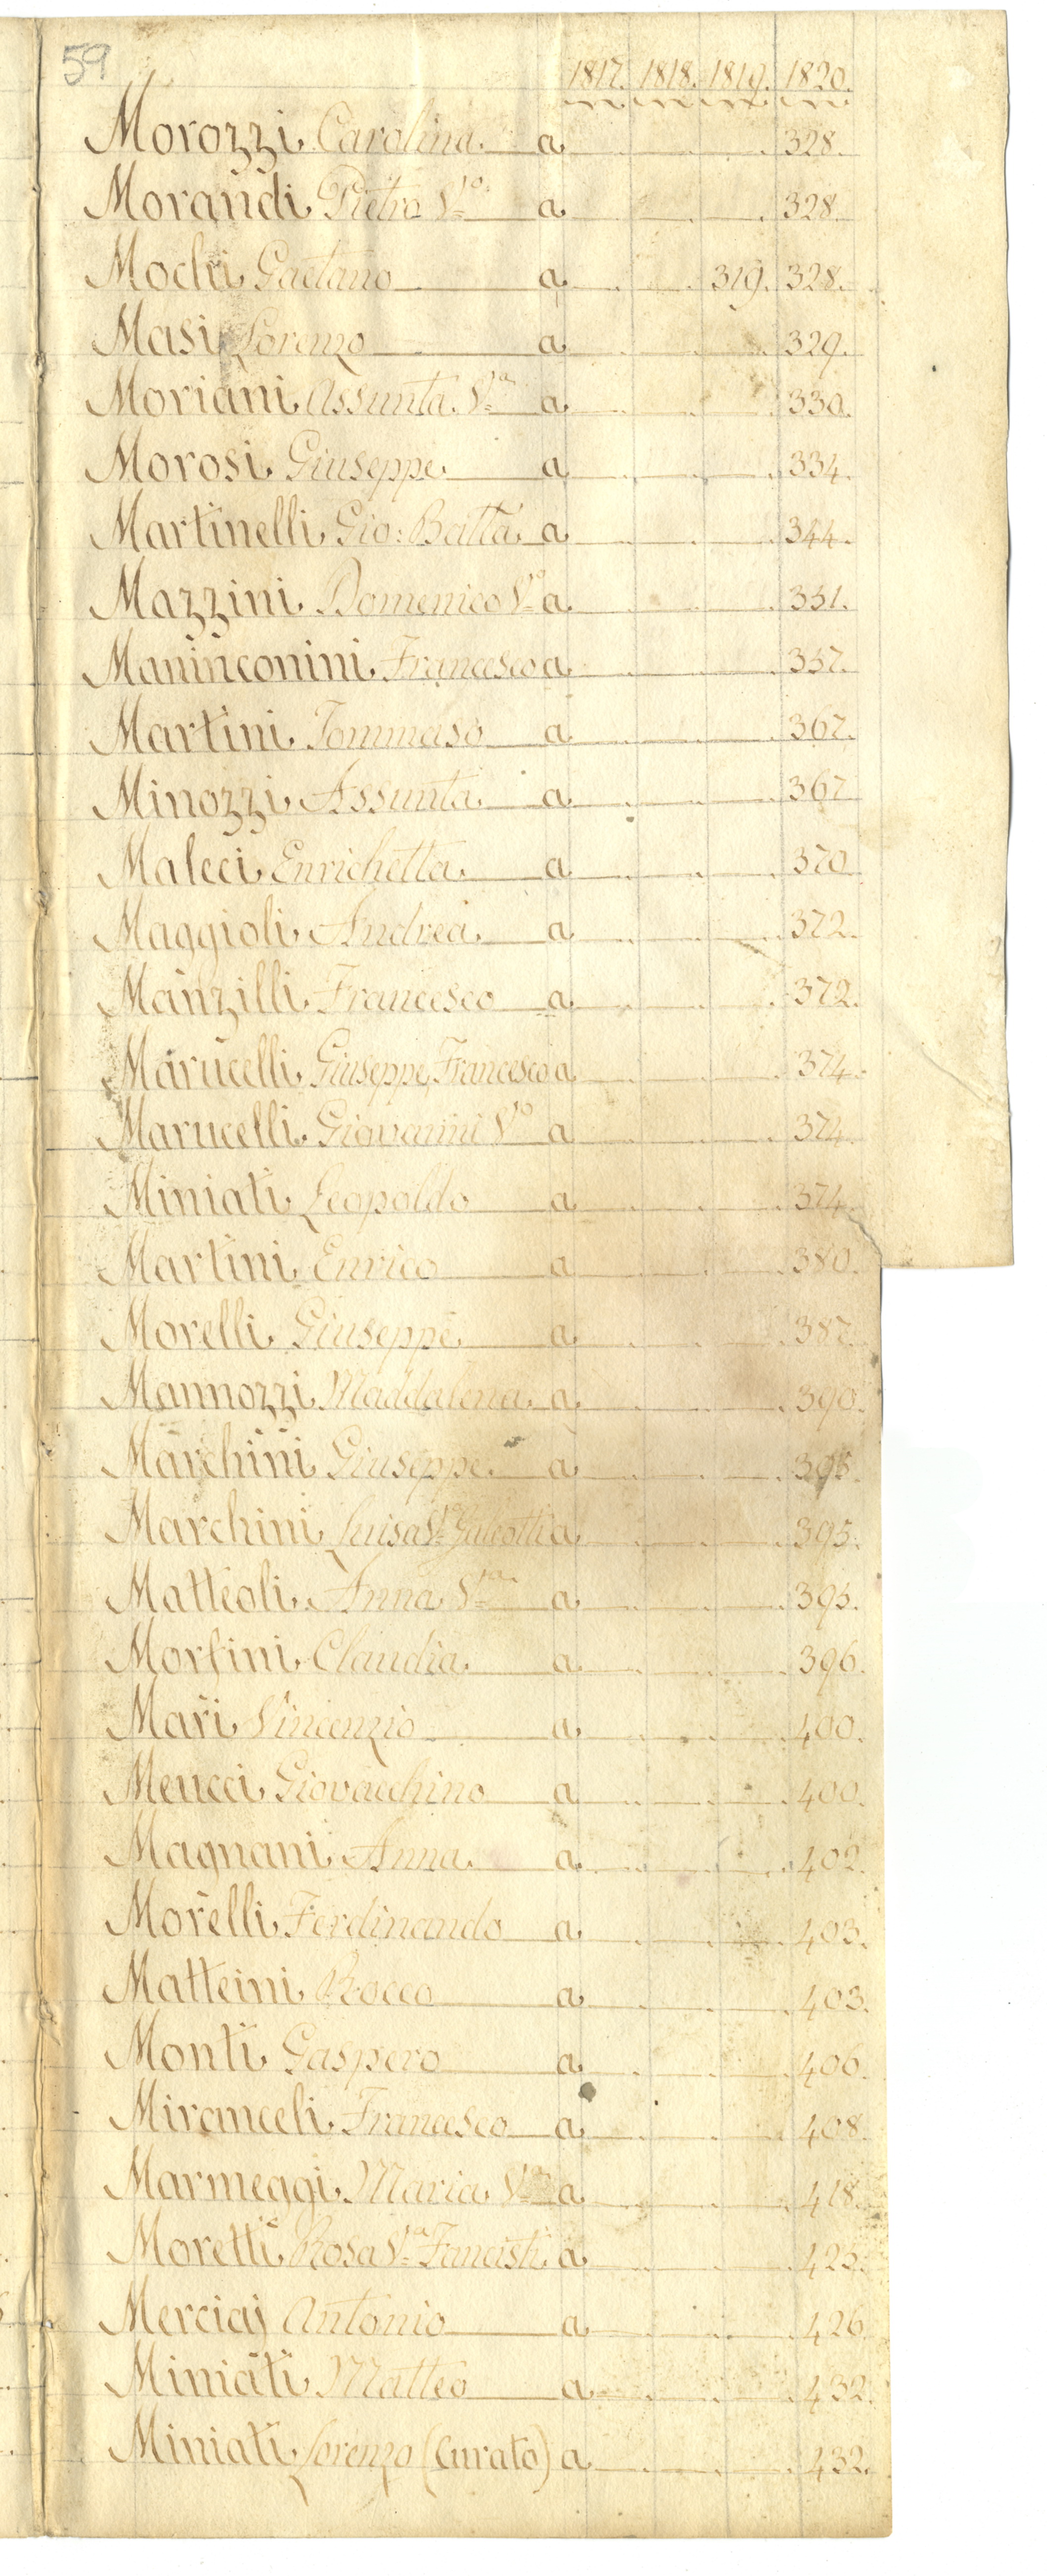 59
1817. 1818. 1819. 1820.
Morozzi Carolina a 328.
Morandi Pietro Vo. a 328.
Mochi Gaetano a 319. 328.
Masi Lorenzo a 329.
Moriani Assunta Va. a 330.
Morosi Giuseppe a 334.
Martinelli Gio: Batta a 344.
Mazzini Domenico Vo. a 351.
Maninconini Francesco a 357.
Martini Tommaso a 367.
Minozzi Assunta a 367
Maleci Enrichetta a 370
Maggioli Andrea a 372.
Manzilli Francesco a 372.
Marucelli Giuseppe Francesco a 374.
Marucelli Giovanni Vo. a 374.
Miniati Leopoldo a 374.
Martini Enrico a 380.
Morelli Giuseppe a 387.
Mannozzi Maddalena a 390.
Marchini Giuseppe a 395.
Marchini Luisa Va. Galeotti a 395.
Matteoli Anna Va. a 395.
Morfini Claudia a 396.
Mari Vincenzio a 400.
Meucci Giovacchino a 400.
Magnani Anna a 402.
Morelli Ferdinando a 403.
Matteini Rocco a 403.
Monti Gaspero a 406.
Miranceli Francesco a 408.
Marmeggi Maria Va. a 418.
Moretti Rosa Va. a 423.
Merciaj Antonio a 426.
Miniati Matteo a 432.
Miniati Lorenzo (Curato) a 432.